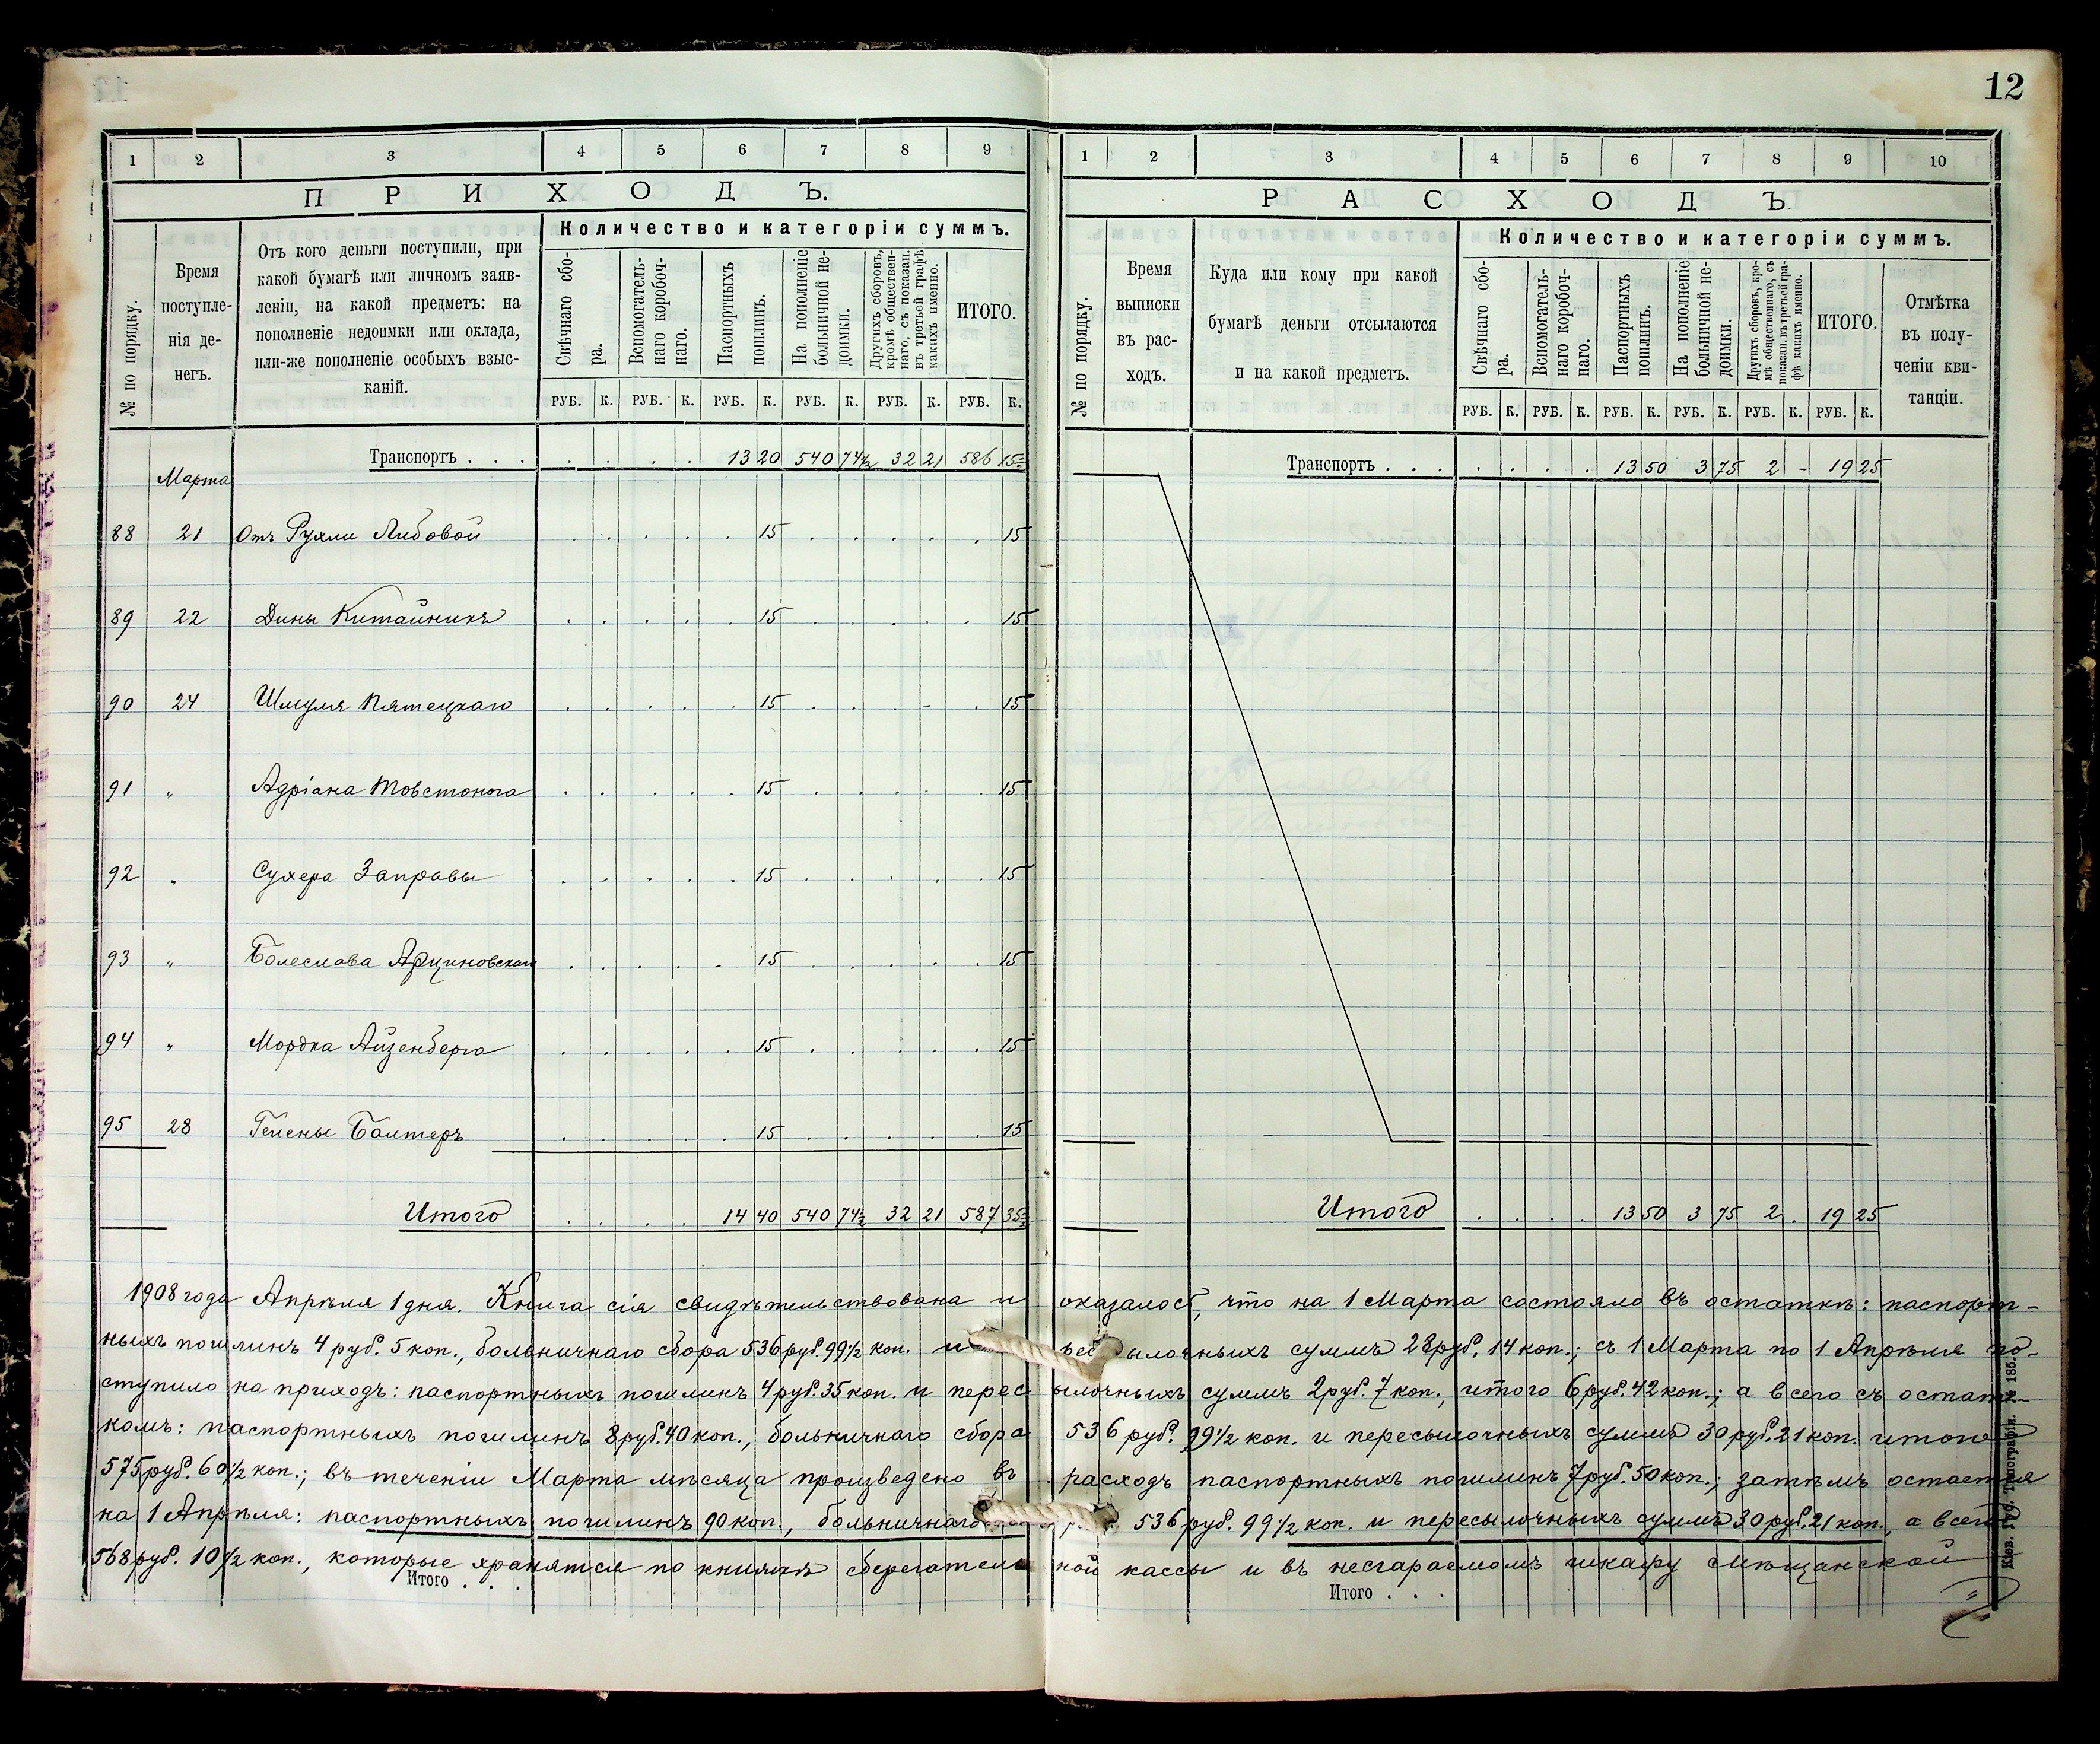 12
1 2 3 4 5 6 7 8 9
ПРИХОДЪ.
№ по порядку.
Время поступле-
нія де-
негъ.
Отъ кого деньги поступили, при
какой бумагѣ или личномъ заяв-
леніи, на какой предметъ: на
пополненіе недоимки или оклада,
или-же пополненіе особыхъ взыс-
каній.
Количество и категоріи суммъ.
Свѣчнаго сбо-
ра.
Вспомогатель-
наго коробоч-
наго.
Паспортныхъ
пошлинъ.
На пополненіе
больничной не-
доимки.
Другихъ сборовъ,
кромѣ обществен-
наго, съ показан.
въ третьей графѣ
какихъ именно.
ИТОГО.
РУБ. К. РУБ. К. РУБ. К. РУБ. К. РУБ. К. РУБ. К.
Транспортъ . . . 13 20 540 74½ 32 21 586 15½
Марта
88 21 Отъ Рухли Либовой 15 15
89 22 Дины Китайникъ 15 15
90 24 Шмуля Пятецкаго 15 15
91 " Адріана Товстонога 15 15
92 " Сухера Заправы 15 15
93 " Болеслава Арциновскаго 15 15
94 " Мордка Айзенберга 15 15
95 28 Гелены Бальтеръ 15 15
Итого 14 40 540 74½ 32 21 587 35½
1 2 3 4 5 6 7 8 9 10
РАСХОДЪ.
№ по порядку.
Время
выписки
въ рас-
ходъ.
Куда или кому при какой
бумагѣ деньги отсылаются
и на какой предметъ.
Количество и категоріи суммъ.
Свѣчнаго сбо-
ра.
Вспомогатель-
наго коробоч-
наго.
Паспортныхъ
пошлинъ.
На пополненіе
больничной не-
доимки.
Другихъ сборовъ, кро-
мѣ общественнаго, съ
показан. въ третьей гра-
фѣ какихъ именно.
ИТОГО.
Отмѣтка
въ полу-
ченіи кви-
танціи.
РУБ. К. РУБ. К. РУБ. К. РУБ. К. РУБ. К. РУБ. К.
Транспортъ . . . 13 50 3 75 2 - 19 25
Итого 13 50 3 75 2 . 19 25
1908 года Апрѣля 1 дня. Книга сія свидѣтельствована и оказалось, что на 1 Марта состояло въ остаткѣ: паспорт-
ныхъ пошлинъ 4 руб. 5 коп., больничнаго сбора 536 руб. 99½ коп. и пересылочныхъ суммъ 28 руб. 14 коп.; съ 1 Марта по 1 Апрѣля по-
ступило на приходъ: паспортныхъ пошлинъ 4 руб. 35 коп. и пересылочныхъ суммъ 2 руб. 7 коп., итого 6 руб. 42 коп.; а всего съ остат-
комъ: паспортныхъ пошлинъ 8 руб. 40 коп., больничнаго сбора 536 руб. 99½ коп. и пересылочныхъ суммъ 30 руб. 21 коп. итого
575 руб. 60½ коп.; въ теченіи Марта мѣсяца произведено въ расходъ паспортныхъ пошлинъ 7 руб. 50 коп.; затѣмъ остается
на 1 Апрѣля: паспортныхъ пошлинъ 90 коп., больничнаго 536 руб. 99½ коп. и пересылочныхъ суммъ 30 руб. 21 коп., а всего
568 руб. 10½ коп., которые хранятся по книжкѣ сберегательной кассы и въ несгараемомъ шкафу Мѣщанской
Итого . . .
Итого . . .
Кіев. Губ. Типографія. № 186.